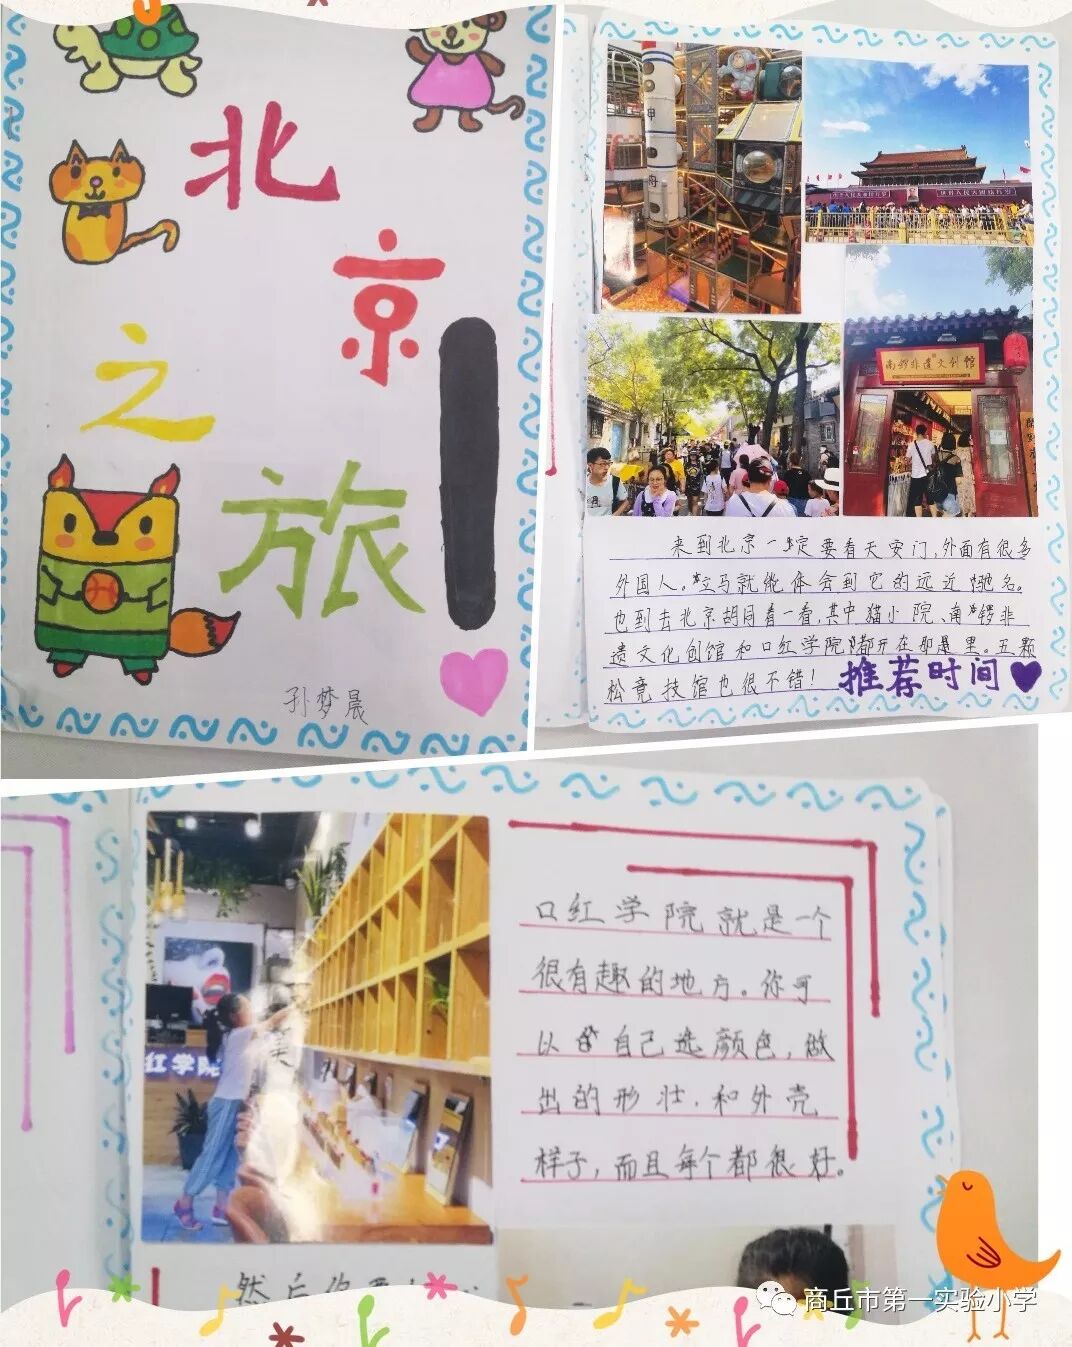 北
京
之
旅
孙梦晨
神
舟
世界人民大团结万岁
南锣非遗文创馆
来到北京一定要看天安门,外面有很多
外国人。立马就能体会到它的远近驰名。
也到去北京胡同看一看,其中猫小院、南锣非
遗文化创馆和口红学院都开在那里。五颗
松竞技馆也很不错!
推荐时间
红学院
口红学院就是一个
很有趣的地方。你可
以自己选颜色,做
出的形壮,和外壳
样子,而且每个都很好。
商丘市第一实验小学